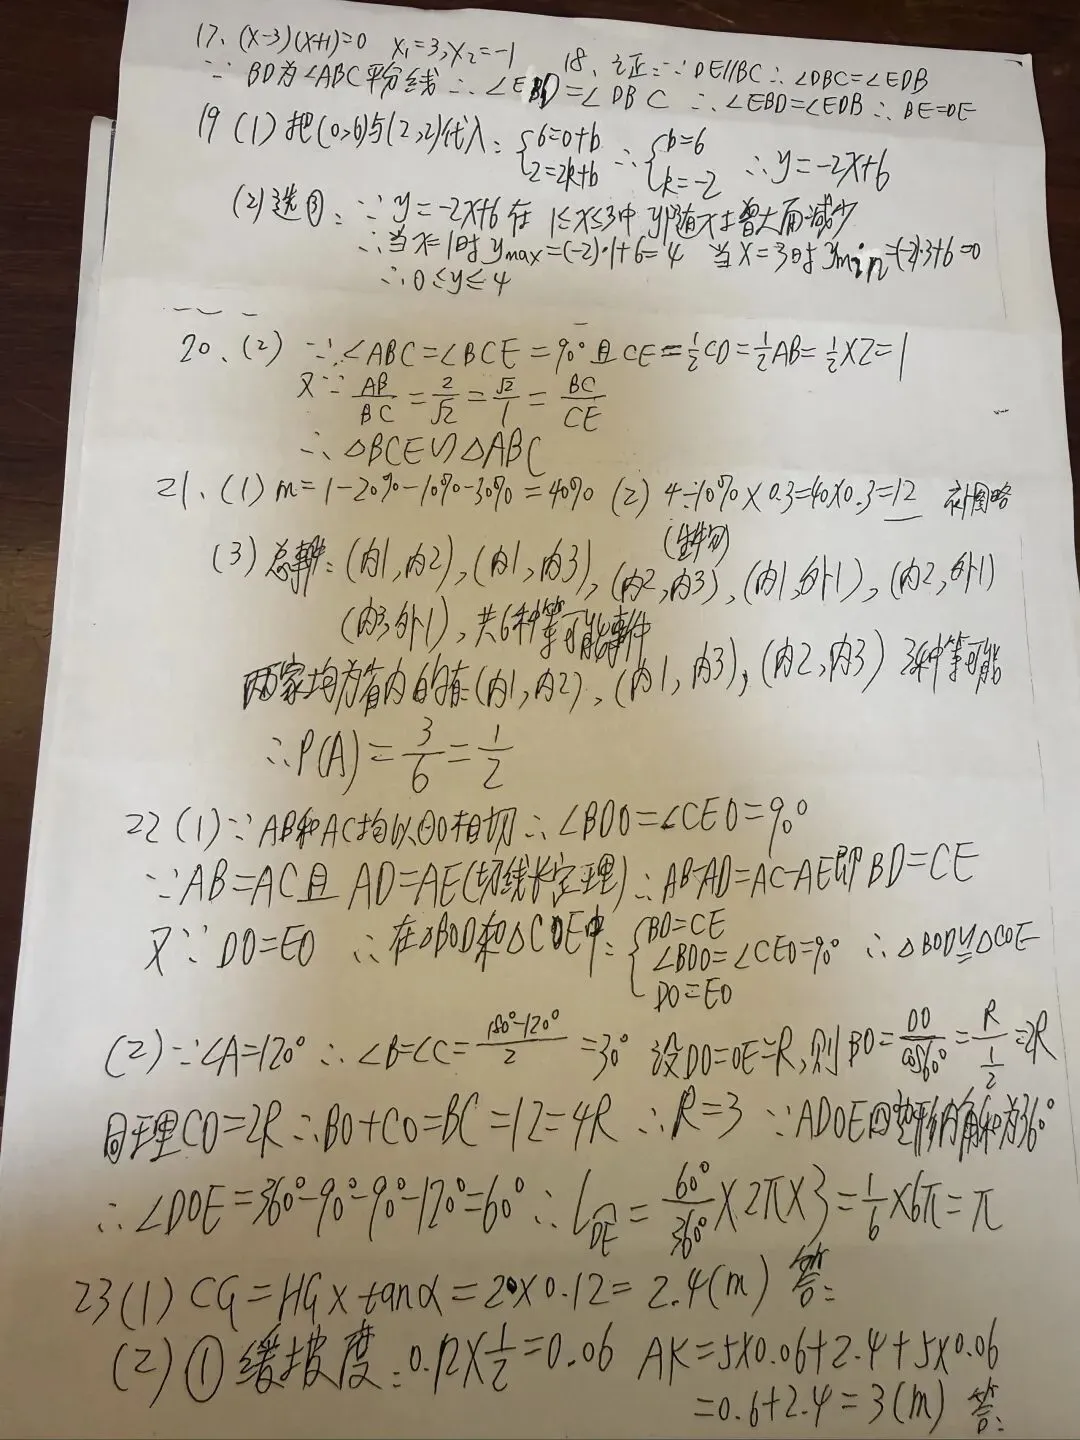 17、(x-3)(x+1)=0 x₁=3,x₂=-1 18、证:∵DE//BC∴∠DBC=∠EDB
∵BD为∠ABC平分线∴∠EBD=∠DBC ∴∠EBD=∠EDB∴BE=DE
19 (1) 把(0,6)与(2,2)代入: {6=0+b 2=2k+b ∴{b=6 k=-2 ∴y=-2x+6
(2)选③:∵y=-2x+6在1≤x≤3中 y随x增大而减少
∴当x=1时 ymax=(-2)·1+6=4 当x=3时 ymin=(-2)·3+6=0
∴0≤y≤4
20、(2) ∵∠ABC=∠BCE=90°且CE=½CD=½AB=½×2=1
又∵ AB/BC=2/√2=√2/1=BC/CE
∴△BCE∽△ABC
21、(1) m=1-20%-10%-30%=40% (2) 4÷10%×0.3=40×0.3=12 补图略
(生物)
(3) 总事件:(内1,内2),(内1,内3),(内2,内3),(内1,外1),(内2,外1)
(内3,外1),共6种等可能事件
两家均为省内的有:(内1,内2),(内1,内3),(内2,内3) 3种等可能
∴P(A)=3/6=1/2
22 (1)∵AB和AC均以⊙O相切∴∠BDO=∠CEO=90°
∵AB=AC且AD=AE(切线长定理)∴AB-AD=AC-AE即BD=CE
又∵DO=EO ∴在△BOD和△COE中:{BD=CE ∠BDO=∠CEO=90° DO=EO ∴△BOD≌△COE
(2)∵∠A=120°∴∠B=∠C=(180°-120°)/2=30° 设DO=OE=R,则BO=DO/cos60°=R/(1/2)=2R
同理CO=2R∴BO+CO=BC=12=4R ∴R=3 ∵ADOE四边形内角和为360°
∴∠DOE=360°-90°-90°-120°=60°∴l⌒DE=60°/360°×2π×3=1/6×6π=π
23(1) CG=HG×tanα=20×0.12=2.4(m) 答:
(2)①缓坡度:0.12×½=0.06 AK=5×0.06+2.4+5×0.06
=0.6+2.4=3(m) 答: